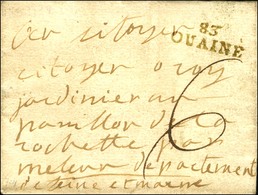 au citoyen
83
OUAINE
citoyen oroy
jardinier au
pavillon de la
rochette pres
melun departement
de seine et marne
6